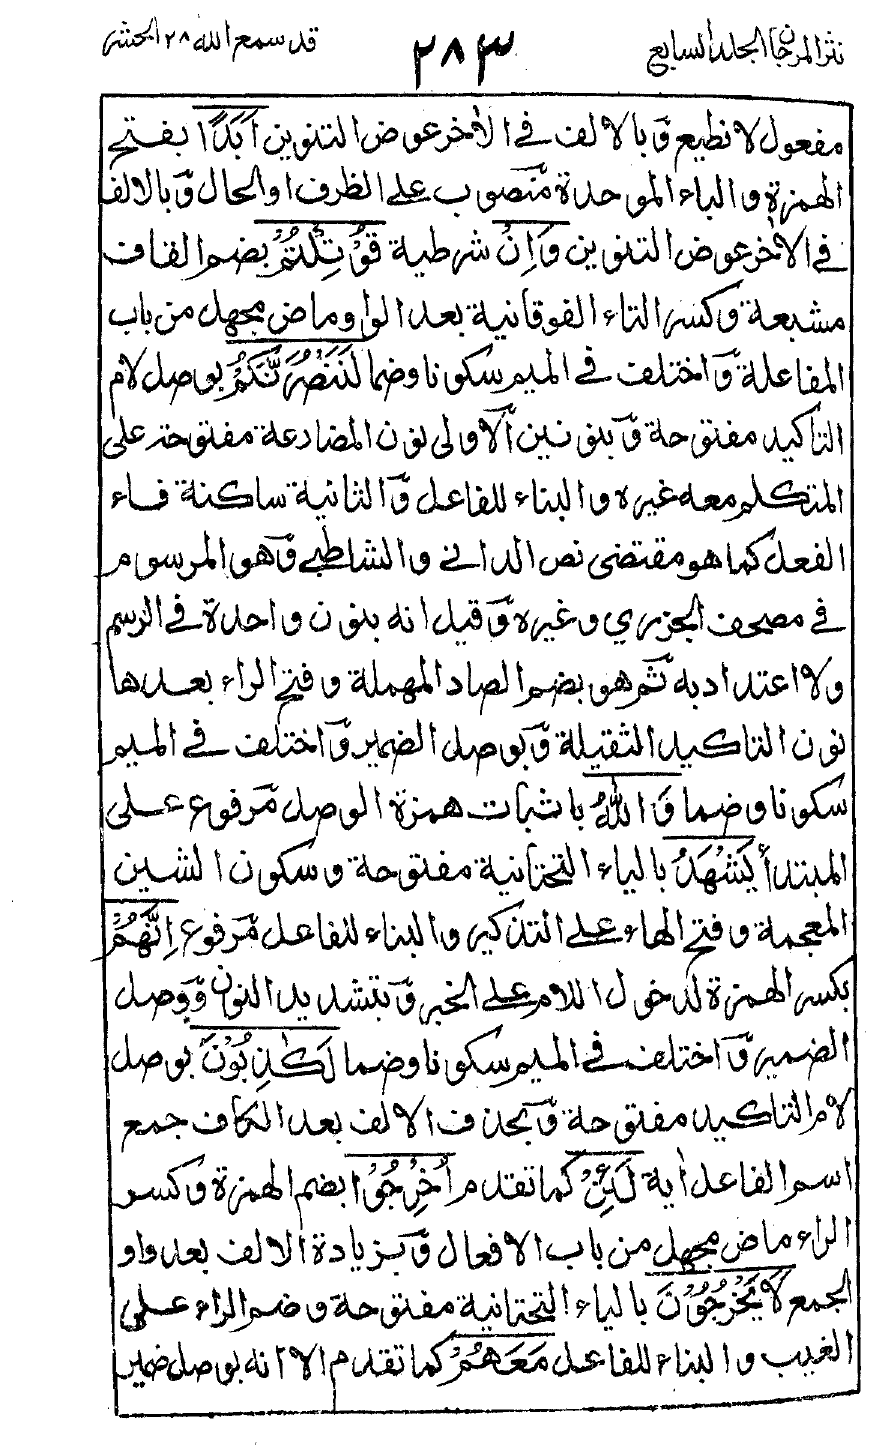 نثر المرجان الجلد السابع
٢٨٣
قد سمع الله ٢٨ الحشر
مفعول لا نطيع وبالالف في الأخر عوض التنوين اَبَدًا بفتح
الهمزة والباء الموحدة منصوب على الظرف او الحال وبالالف
في الأخر عوض التنوين وَاِنْ شرطية قُوْتِلْتُمْ بضم القاف
مشبعة وكسر التاء الفوقانية بعد الواو ماض مجهل من باب
المفاعلة واختلف في الميم سكونا وضما لَنَنْصُرَنَّكُمْ بوصل لام
التأكيد مفتوحة وبنونين الاولى نون المضارعة مفتوحة على
المتكلم معه غيره والبناء للفاعل والثانية ساكنة فاء
الفعل كما هو مقتضى نص الداني والشاطبي وهو المرسوم
في مصحف الجزري وغيره وقيل انه بنون واحدة في الرسم
ولا اعتداد به ثم هو بضم الصاد المهملة وفتح الراء بعدها
نون التاكيد الثقيلة وبوصل الضمير واختلف في الميم
سكونا وضما وَاللّٰهُ باثبات همزة الوصل مرفوع على
المبتدأ يَشْهَدُ بالياء التحتانية مفتوحة وسكون الشين
المعجمة وفتح الهاء على التذكير والبناء للفاعل مرفوع اِنَّهُمْ
بكسر الهمزة لدخول اللام على الخبر وبتشديد النون ووصل
الضمير واختلف في الميم سكونا وضما لَكٰذِبُوْنَ بوصل
لام التاكيد مفتوحة وبحذف الالف بعد الكاف جمع
اسم الفاعل أية لَئِنْ كما تقدم اُخْرِجُوْا بضم الهمزة وكسر
الراء ماض مجهل من باب الافعال وبزيادة الالف بعد واو
الجمع لَا يَخْرُجُوْنَ بالياء التحتانية مفتوحة وضم الراء على
الغيب والبناء للفاعل مَعَهُمْ كما تقدم الا انه بوصل ضمير